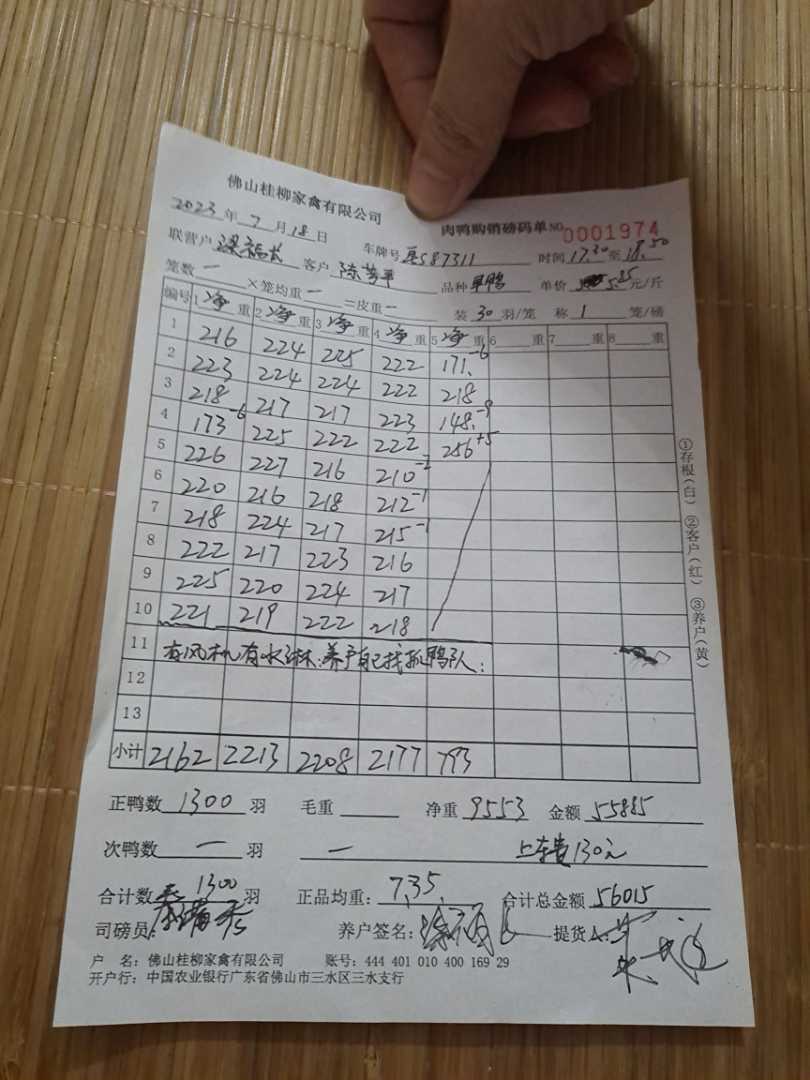 佛山桂柳家禽有限公司
肉鸭购销磅码单 NO 0001974
2023 年 7 月 18 日
车牌号 587311 时间 17.30 至 18.50
联营户 客户 陈 平 品种 旱鸭 单价 5.85 元/斤
笼数 一 ×笼均重 一 =皮重 一 装 30 羽/笼 称 1 笼/磅
编号 1 净 重 2 净 重 3 净 重 4 净 重 5 净 重 6 重 7 重 8 重
1 216 224 225 222 171.-6
2 223 224 224 222 218
3 218 217 217 223 148.-9
4 173-6 225 222 222 256+5
5 226 227 216 210-2
6 220 216 218 212-1
7 218 224 217 215-1
8 222 217 223 216
9 225 220 224 217
10 221 219 222 218
11 有风机有水淋:养户自己找抓鸭队:
12
13
小计 2162 2213 2208 2177 793
①存根(白) ②客户(红) ③养户(黄)
正鸭数 1300 羽 毛重 净重 9553 金额 55885
次鸭数 一 羽 一 上车费130元
合计数 1300 羽 正品均重: 7.35 合计总金额 56015
司磅员: 养户签名: 提货人
户 名: 佛山桂柳家禽有限公司 账号: 444 401 010 400 169 29
开户行: 中国农业银行广东省佛山市三水区三水支行